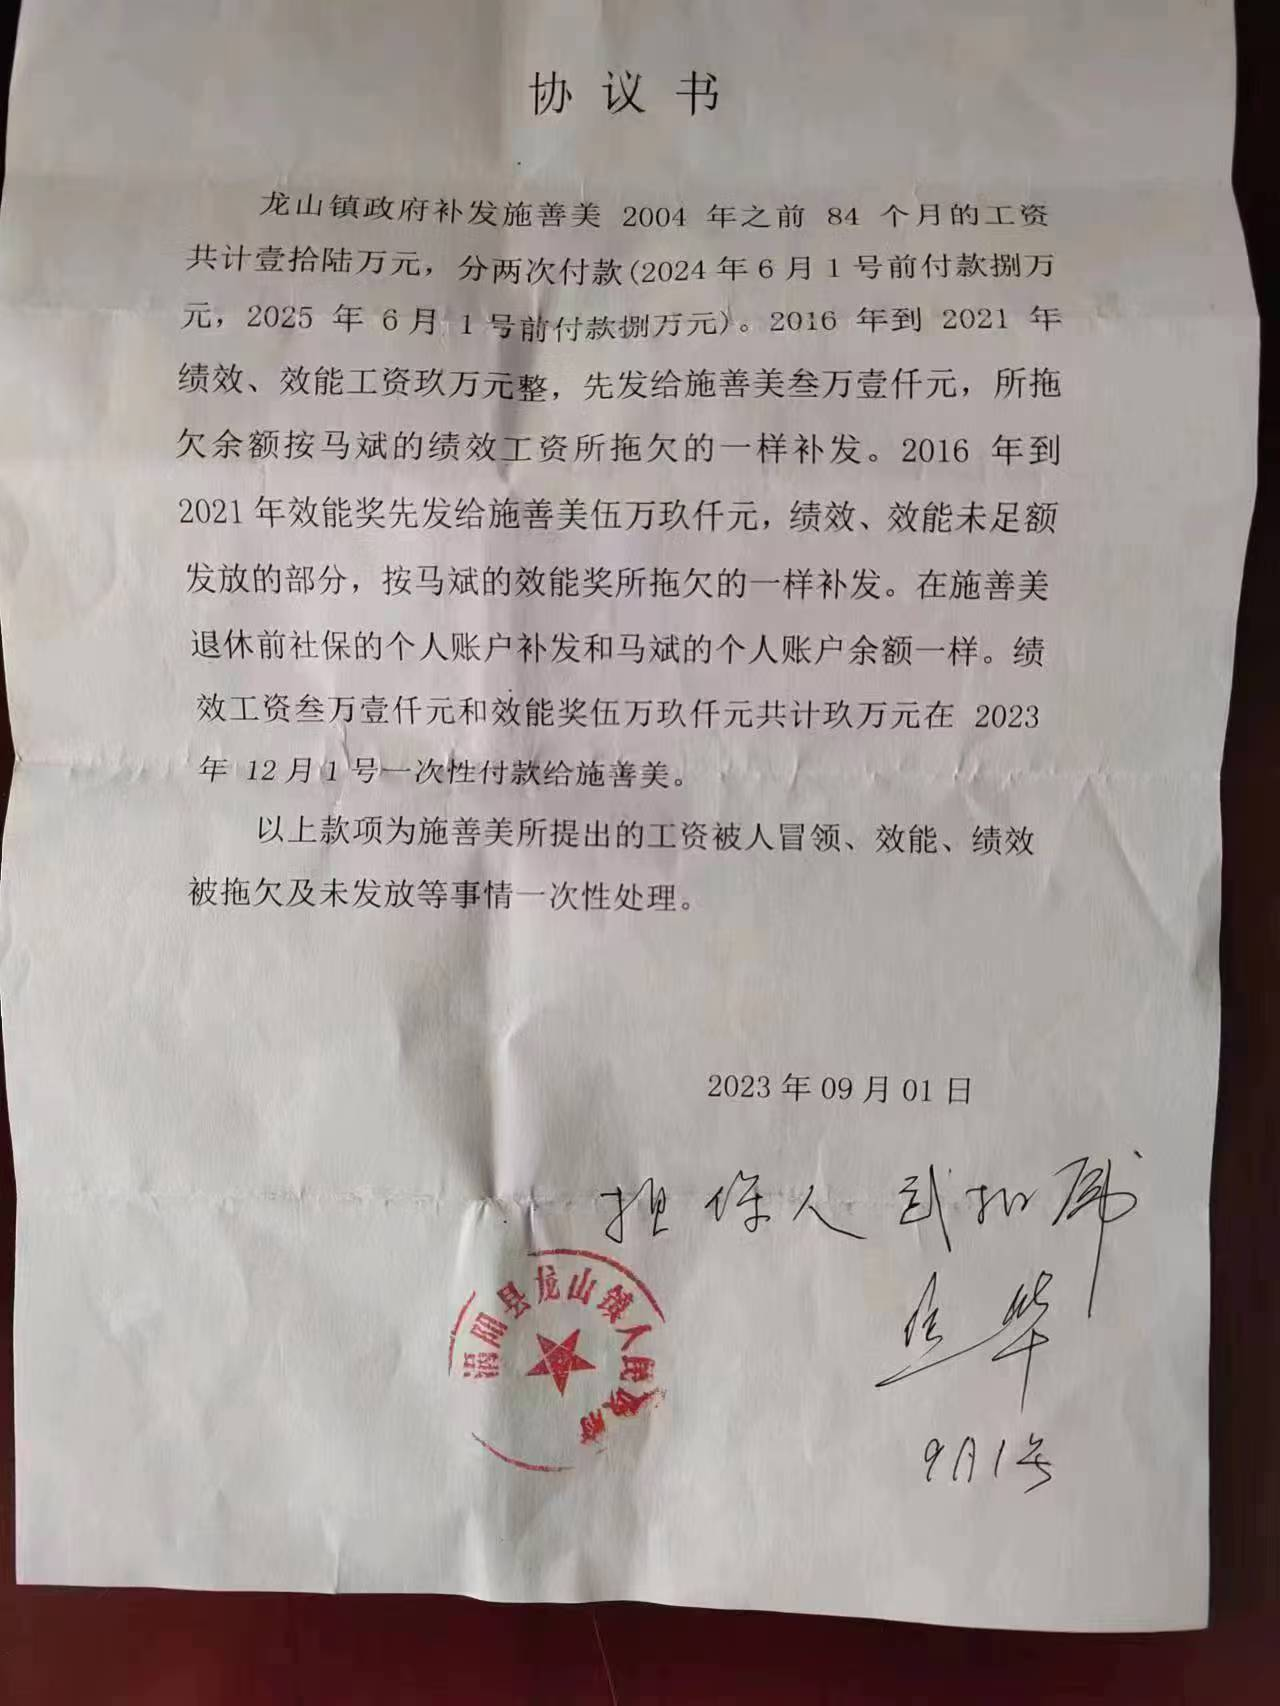 协议书
龙山镇政府补发施善美 2004 年之前 84 个月的工资
共计壹拾陆万元，分两次付款(2024 年 6 月 1 号前付款捌万
元，2025 年 6 月 1 号前付款捌万元)。2016 年到 2021 年
绩效、效能工资玖万元整，先发给施善美叁万壹仟元，所拖
欠余额按马斌的绩效工资所拖欠的一样补发。2016 年到
2021 年效能奖先发给施善美伍万玖仟元，绩效、效能未足额
发放的部分，按马斌的效能奖所拖欠的一样补发。在施善美
退休前社保的个人账户补发和马斌的个人账户余额一样。绩
效工资叁万壹仟元和效能奖伍万玖仟元共计玖万元在 2023
年 12 月 1 号一次性付款给施善美。
以上款项为施善美所提出的工资被人冒领、效能、绩效
被拖欠及未发放等事情一次性处理。
2023 年 09 月 01 日
担保人 武
华
9月1号
涡阳县龙山镇人民政府